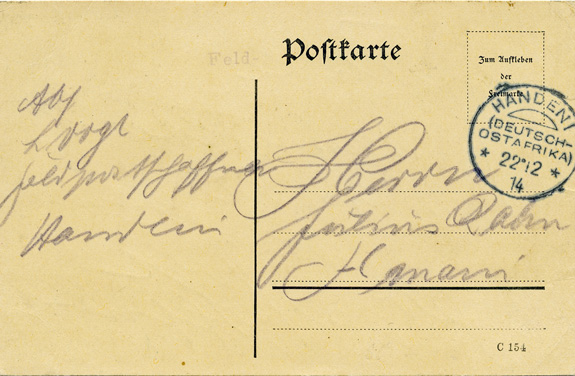 Feld-
Postkarte
Zum Aufkleben
der
Freimarke
HANDENI
(DEUTSCH-
OSTAFRIKA)
* 22 12 *
14
Abs
L Vogt
Feldpostschaffner
Handeni
Herrn
Julius
C 154